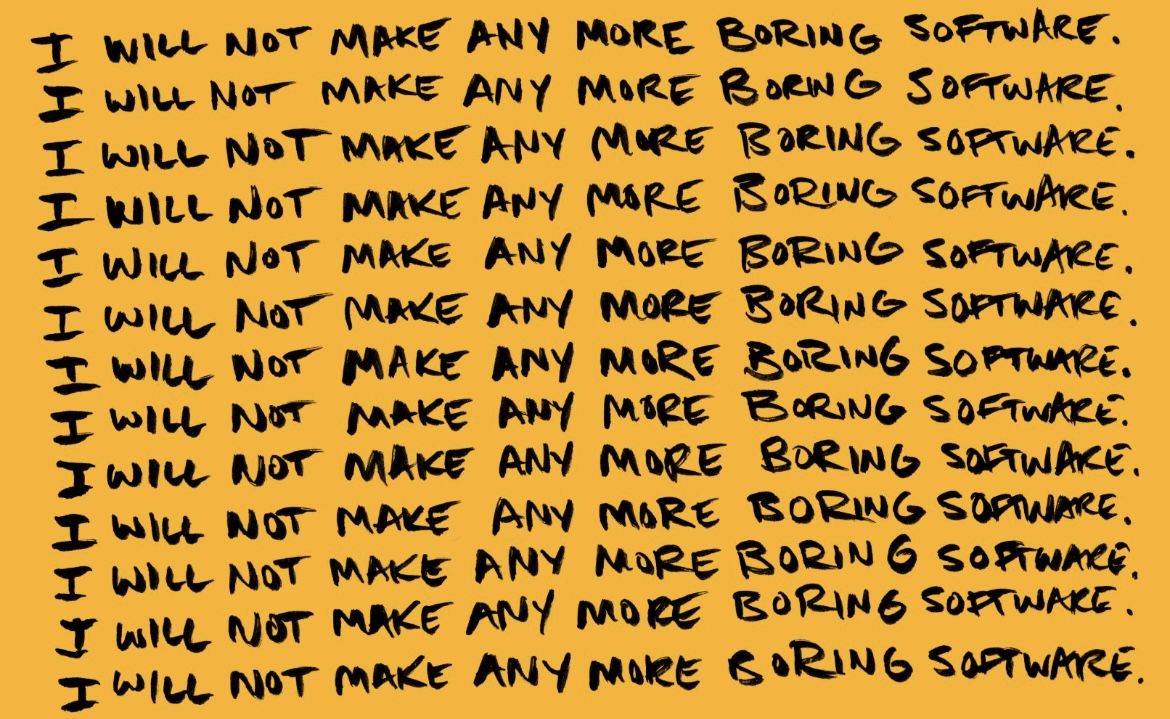 I WILL NOT MAKE ANY MORE BORING SOFTWARE.
I WILL NOT MAKE ANY MORE BORING SOFTWARE.
I WILL NOT MAKE ANY MORE BORING SOFTWARE.
I WILL NOT MAKE ANY MORE BORING SOFTWARE.
I WILL NOT MAKE ANY MORE BORING SOFTWARE.
I WILL NOT MAKE ANY MORE BORING SOFTWARE.
I WILL NOT MAKE ANY MORE BORING SOFTWARE.
I WILL NOT MAKE ANY MORE BORING SOFTWARE.
I WILL NOT MAKE ANY MORE BORING SOFTWARE.
I WILL NOT MAKE ANY MORE BORING SOFTWARE.
I WILL NOT MAKE ANY MORE BORING SOFTWARE.
I WILL NOT MAKE ANY MORE BORING SOFTWARE.
I WILL NOT MAKE ANY MORE BORING SOFTWARE.